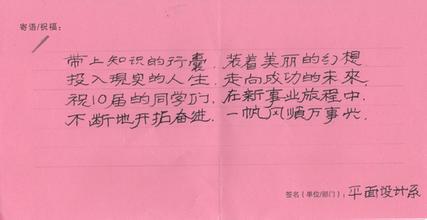 寄语/祝福：
带上知识的行囊，装着美丽的幻想
投入現实的人生，走向成功的未来，
祝10届的同学们，在新事业旅程中，
不断地开拓奋进，一帆风順万事兴，
签名（单位/部门）：平面设计系